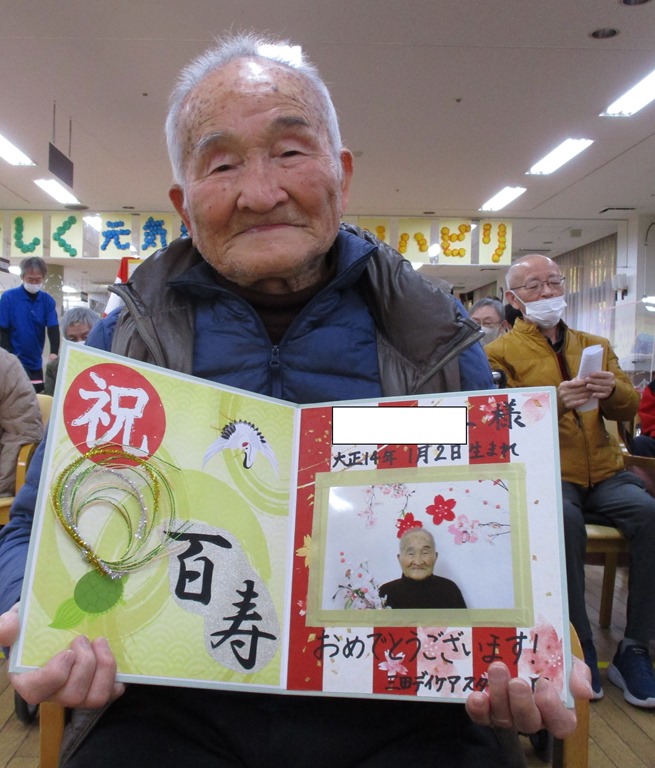 しく 元気
ハビリ
祝
百寿
様
大正14年 1月2日生まれ
おめでとうございます!
三田デイケアスタ